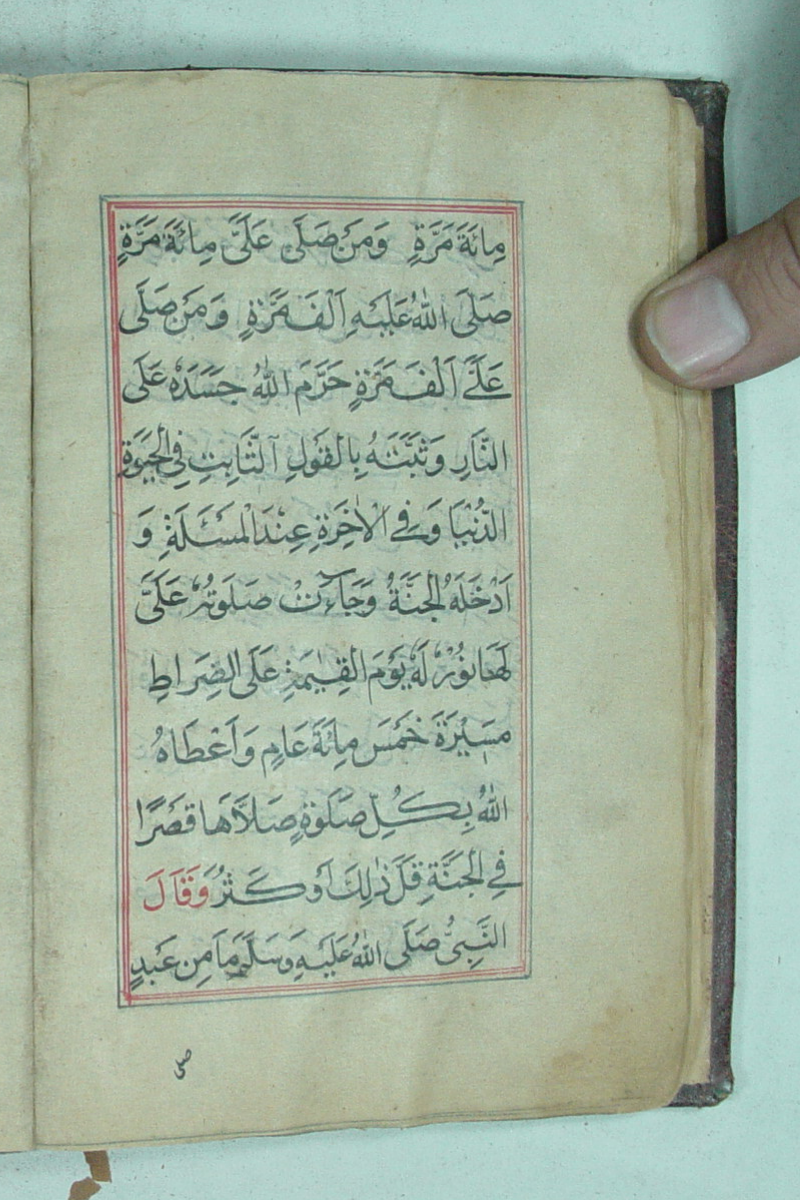 مِائَةَ مَرَّةٍ وَمَنْ صَلَّى عَلَىَّ مِائَةَ مَرَّةٍ
صَلَّى اللهُ عَلَيْهِ اَلْفَ مَرَّةٍ وَمَنْ صَلَّى
عَلَىَّ اَلْفَ مَرَّةٍ حَرَّمَ اللهُ جَسَدَهُ عَلَى
النَّارِ وَثَبَّتَهُ بِالْقَوْلِ الثَّابِتِ فِى الْحَيٰوةِ
الدُّنْيَا وَفِى الْاٰخِرَةِ عِنْدَ الْمَسْئَلَةِ وَ
اَدْخَلَهُ الْجَنَّةَ وَجَاءَتْ صَلَوتُهُ عَلَىَّ
لَهَا نُوْرٌ لَهُ يَوْمَ الْقِيٰمَةِ عَلَى الصِّرَاطِ
مَسِيْرَةَ خَمْسَ مِائَةَ عَامٍ وَاَعْطَاهُ
اللهُ بِكُلِّ صَلَوةٍ صَلَّاهَا قَصْرًا
فِى الْجَنَّةِ قَلَّ ذٰلِكَ اَوْ كَثُرَ وَقَالَ
النَّبِىُّ صَلَّى اللهُ عَلَيْهِ وَسَلَّمَ مَا مِنْ عَبْدٍ
صلى